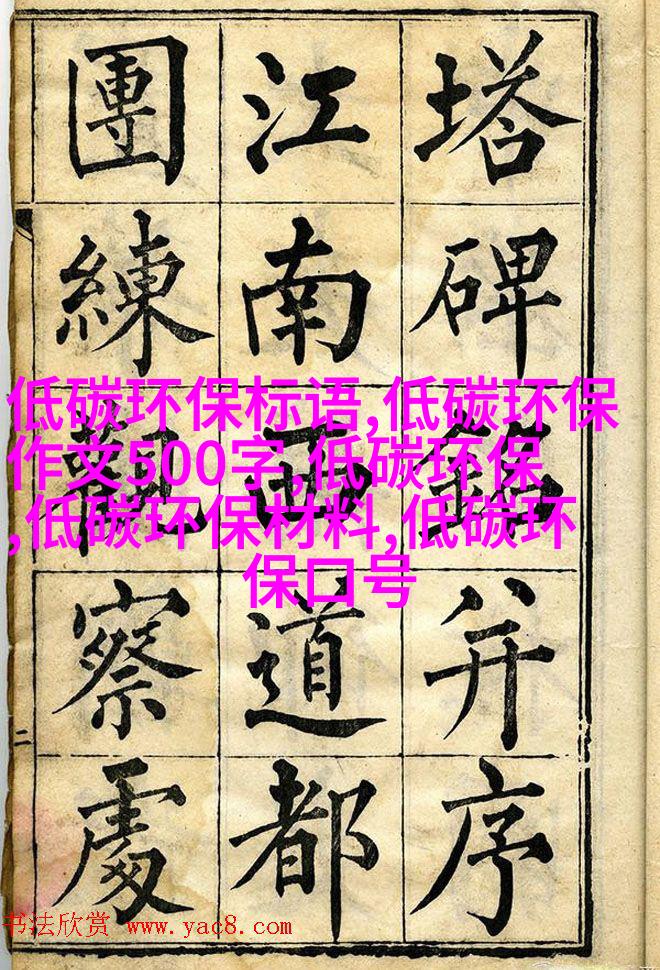 塔碑銘并序
江南西道都
團練觀察處
二
低碳环保标语,低碳环保
作文500字,低碳环保
,低碳环保材料,低碳环
保口号
书法欣赏 www.yac8.com